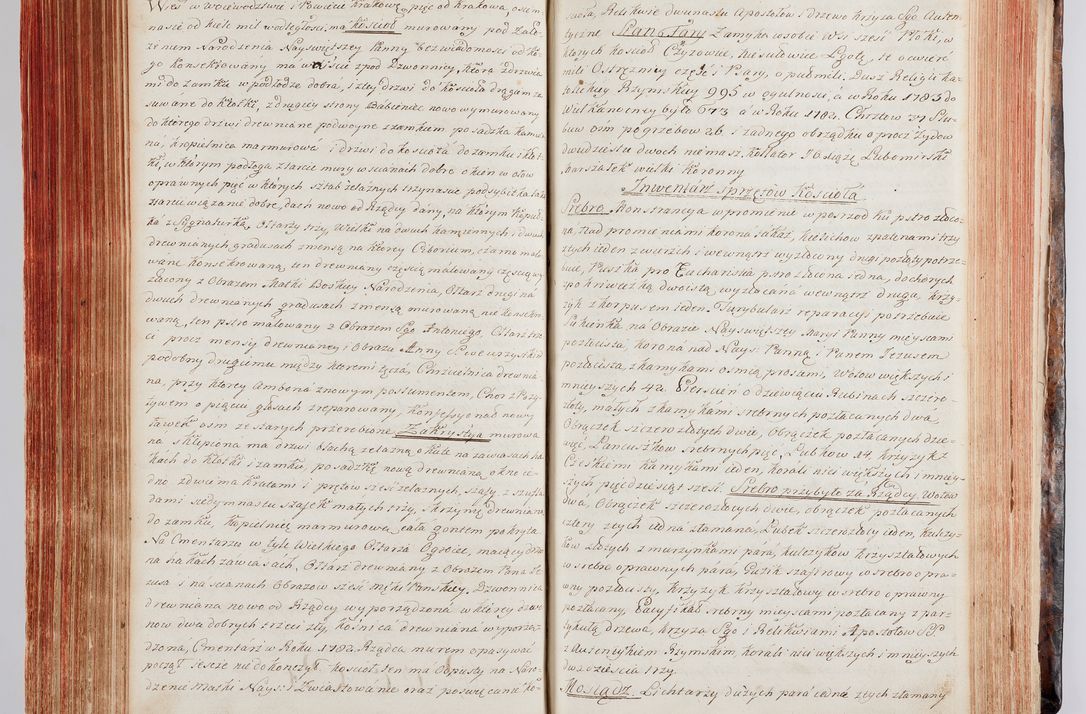 Wieś w Woiewodztwie i Powiecie krakow: pięć od krakowa, osim
naście od kielc mil wodległości, ma kościoł murowany pod Zało
żeniem Narodzenia Nayświętszey Panny bez wiadomosci od ko
go konsekrowany, ma weiście z pod Dzwonnicy, ktora zdrzwia
mi do zamku w podłodze dobra, i z tey drzwi do kościoła drugim za
suwane do kłotki, z drugiey strony Babieniec nowo wymurowany
do ktorego drzwi drewniane podwoyne z zamkiem posadzka kamien
na, kropielnica marmurowa i drzwi do kościoła do zamku i kłot
ki, w którym podłoga z tarcic mury w scianach dobre okien w ołow
oprawnych pięć w ktorych sztab żelaznych trzynaście podsybitka także
z tarcic wiązanie dobre, dach nowo od Rządcy dany, na ktorym kopuł
ka z Sygnaturką, Ołtarzy trzy, Wielki na dwuch kamiennych i dwuch
drewnianych gradusach z mensą na ktorey Cyborium, czarno malo
wane konsekrowaną, ten drewniany częścią malowany częścią wy
złocony z Obrazem Matki Boskiey Narodzenia, Ołtarz drugi na
dwuch drewnianych gradusach z mensą murowaną nie konsekro
waną, ten pstro malowany z Obrazem Sgo Antoniego, Ołtarz trze
ci procz mensy drewnianey i Obrazu Anny S. we wszystkim
podobny drugiemu między ktoremi tęcza, Chrzcielnica drewnia
na, przy ktorey Ambona z nowym postumentem, Chor z Pozy
tywem o pięciu głosach zreparowany, konfessyonał nowy
ławek osm ze starych przerobione. Zakrystya murowa
na sklepiona ma drzwi blachą żelazną okute na zawiasach ha
kach do kłotki i zamku, posadzkę nową drewnianą okno ie
dno z dwiema kratami i prętow sześć żelaznych, szafy z szufla
dami siedymnastu szafek małych trzy, skrzynię drewnianą
do zamku, kropielnicę marmurową, cała gontem pokryta
Na Cmentarzu w tyle Wielkiego Ołtarza Ogroiec, maiący drzwi
na hakach zawiasach, Ołtarz drewniany z Obrazem Pana Je
zusa i na scianach Obrazow sześć męki Panskiey. Dzwonnica
drewniana nowo od Rządcy wyporządzona w ktorey dzwo
now dwa dobrych trzeci zły, kośnica drewniana wyporzą
dzona, Cmentarz w Roku 1782 Rządca murem opasywać
począł ieszcze nie dokończył. kościoł ten ma Odpusty na Naro
dzenie Matki Nays: i Zwiastowanie oraz poswięcania ko
ścioła, Relikwie dwunastu Apostołow i drzewo krzyża Sgo Auten
tyczne. Stan Pary Zamyka w sobie wsi sześć Płoki, w
ktorych kościoł Czyżowiec, Niesułowice Lgotę, te o ćwierć
mili Ostrężnicy część i Psary, o pułmili, Dusz Religii ka
tolickiey Rzymskiey 995 w ogulności, a w Roku 1783 do
Wielkanocney było 673 a w Roku 1782. Chrztow 31 Slu
bow osm pogrzebow 26 i żadnego obrządku oprocz żydow
dwudziestu dwoch niemasz, Kollator Xsiążę Lubomirski
marszałek wielki koronny
Inwentarz sprzętow Kościoła.
Srebro. Monstrancyja w promienie w posrzod ku pstro złoco
na, nad promieniami korona takaż, kielichow z patenami trzy
z tych ieden zwierzch i wewnątrz wyzłocony drugi pozłoty potrze
buie, Puszka pro Eucharistia pstro złocona iedna, do chorych
zpokrywszką dwoistą wyzłacana wewnątrz druga, krzy
żyk z korpusem ieden. Turybularz reparacyi potrzebuie
Sukienka na Obrazie Nayświętszey Maryi Panny mieyscami
pozłocista, korona nad Nays: Panną i Panem Jezusem
pozłocista z kamykami osmią prostami, Wotow większych i
mnieyszych 42. Pierscień o dziewięciu Rubinach szczero
złoty, małych z kamykami srebrnych pozłacanych dwa.
Obrączek szczerozłotych dwie, obrączek pozłacanych dzie
więć, Łancuszkow srebrnych pięć, Lubkow 14, krzyżyk z
Czeskiemi kamykami ieden, korali nici większych i mniey
szych, pięćdziesiąt sześć. Srebro przybyłe za Rządcy. Wotow
dwa, Obrączek szczerozłotych dwie, obrączek pozłacanych
cztery z tych iedna złamana, Lubek szczerozłoty ieden, kulczy
kow złotych z murzynkami para, kulczykow krzyształowych
w srebro oprawnych para, Guzik szafirowy w srebro opra
wny pozłocisty, krzyżyk krzyształowy w srebro oprawny
pozłacany, Pacyfikał srebrny mieyscami pozłacany z par
tykułą drzewa, krzyża Sgo i Relikwiami Apostołow SS.
z Autentykiem Rzymskim, korali nici większych i mnieyszych
dwadzieścia trzy.
Mosiądz. Lichtarzy dużych para iedna z tych złamany